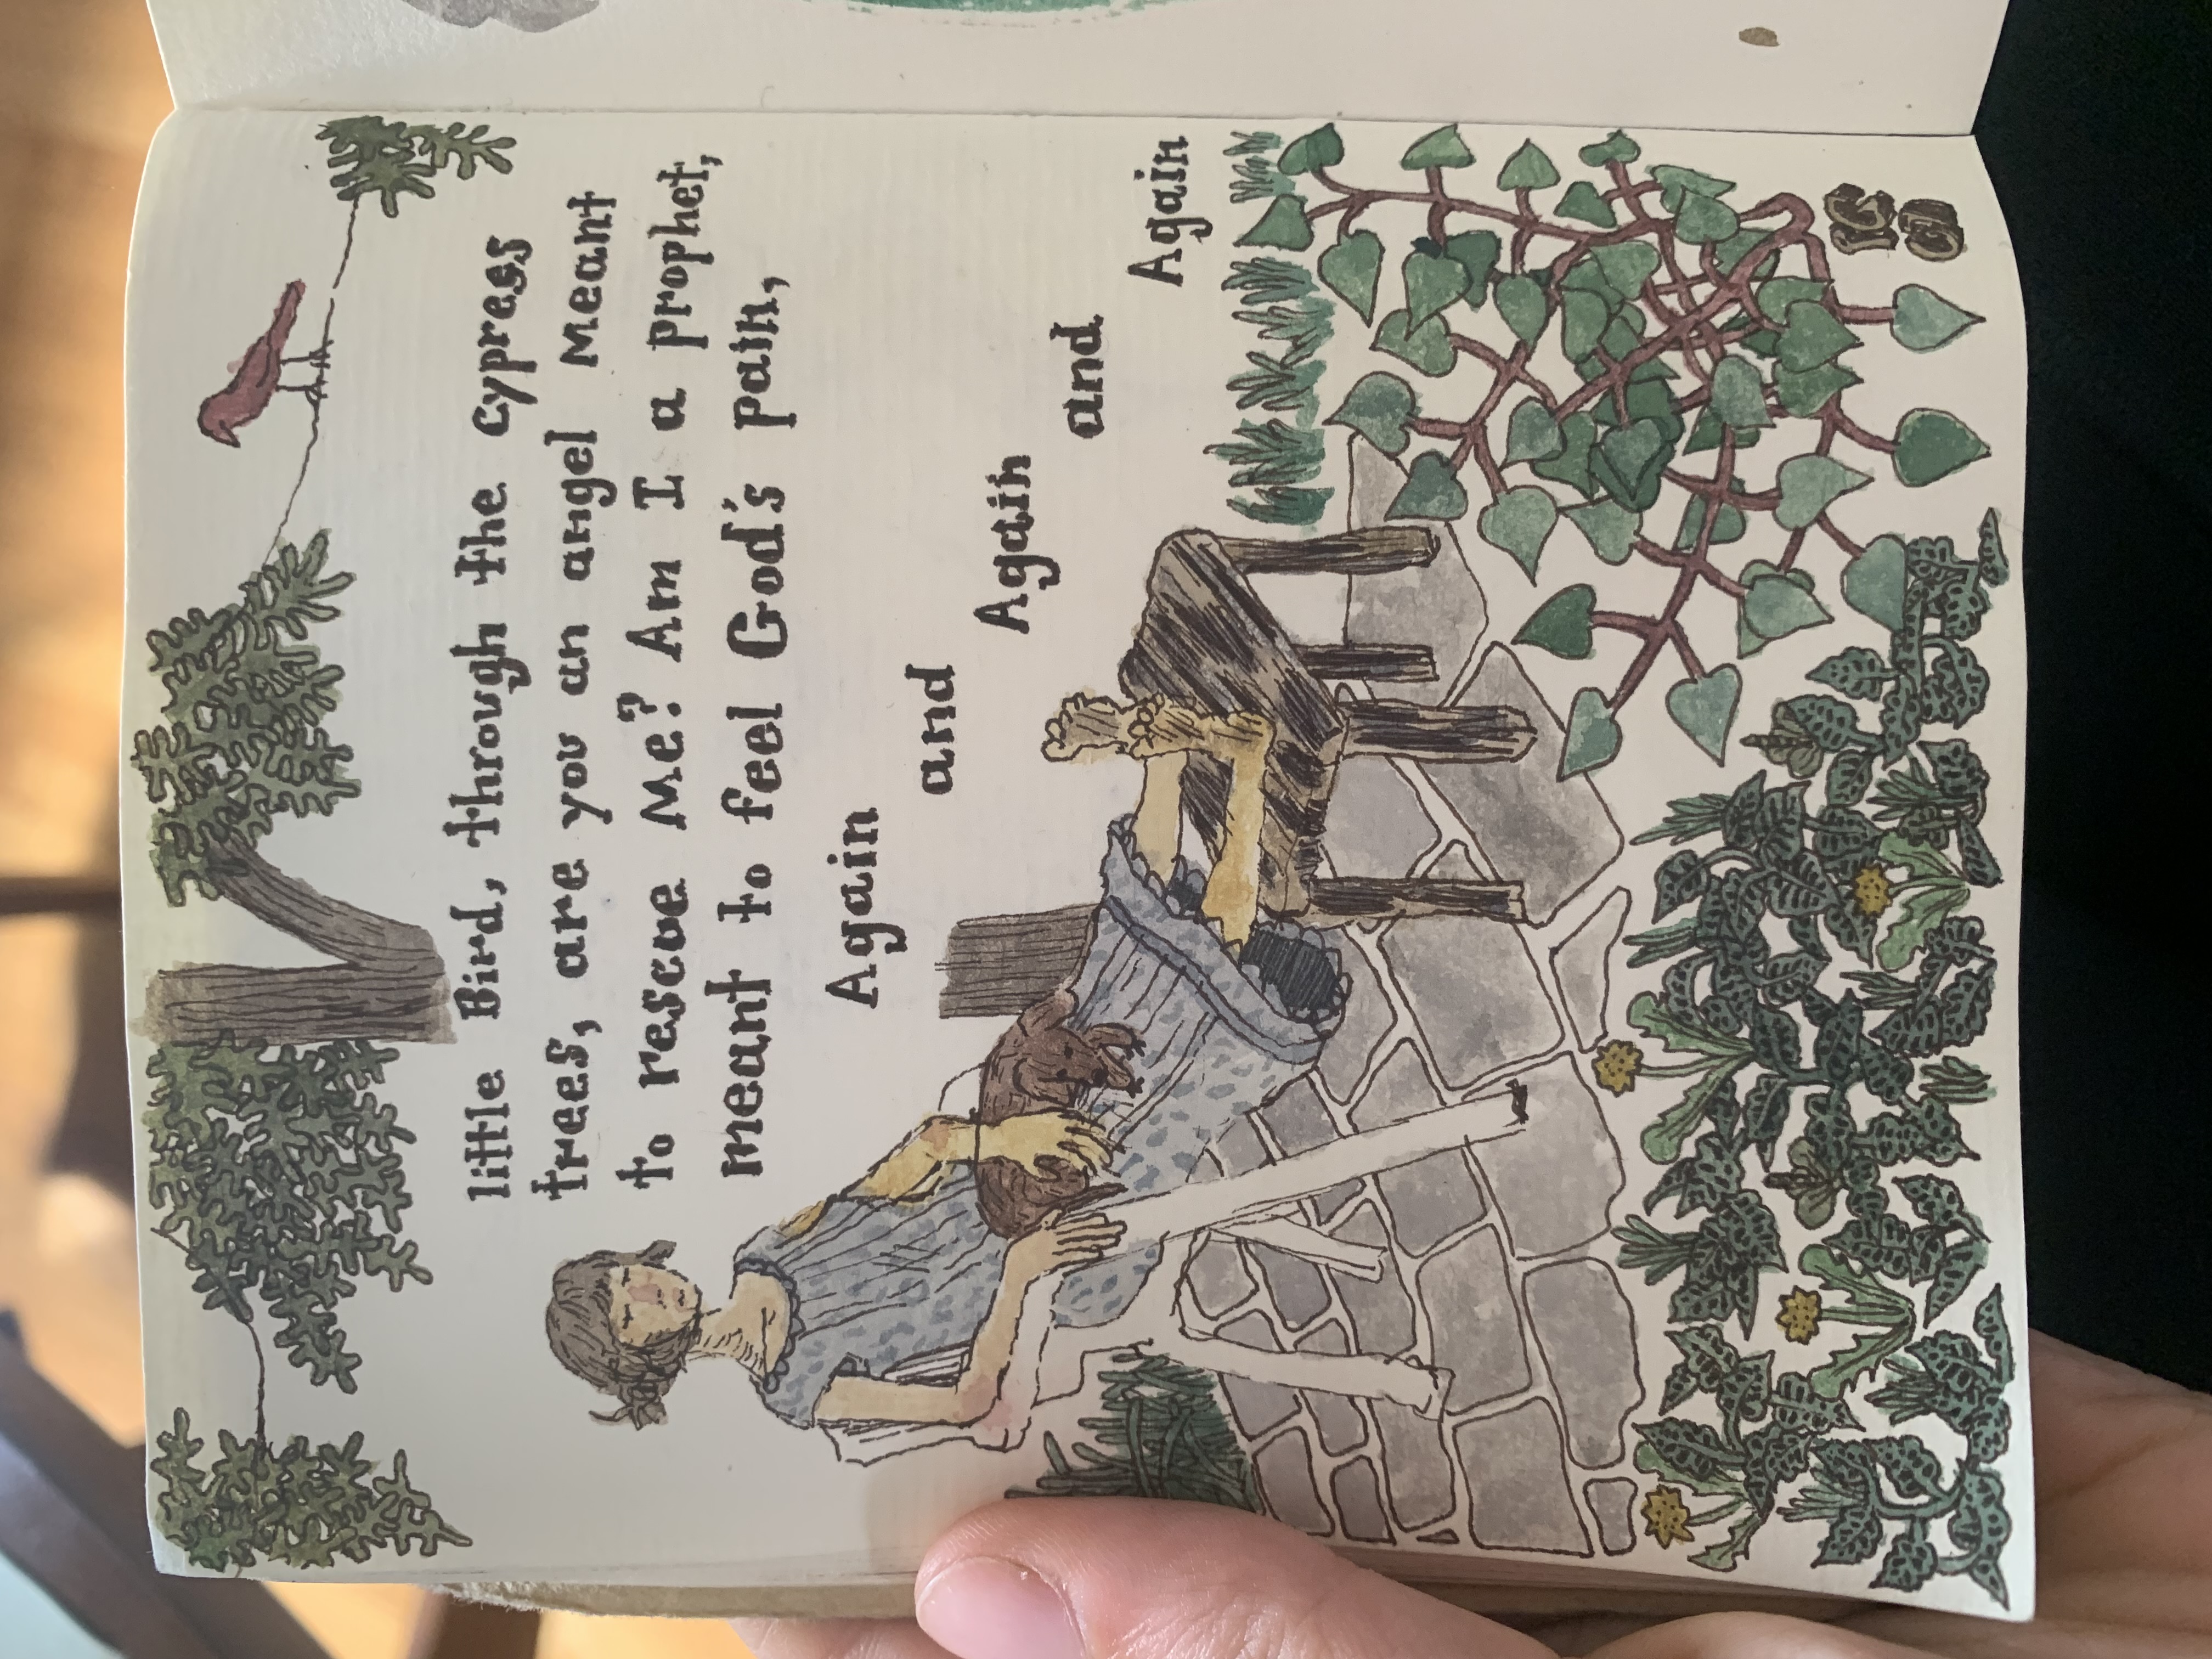 little Bird, through the cypress
trees, are you an angel meant
to rescue me? Am I a prophet,
meant to feel God's pain,
Again
and
Again
and
Again